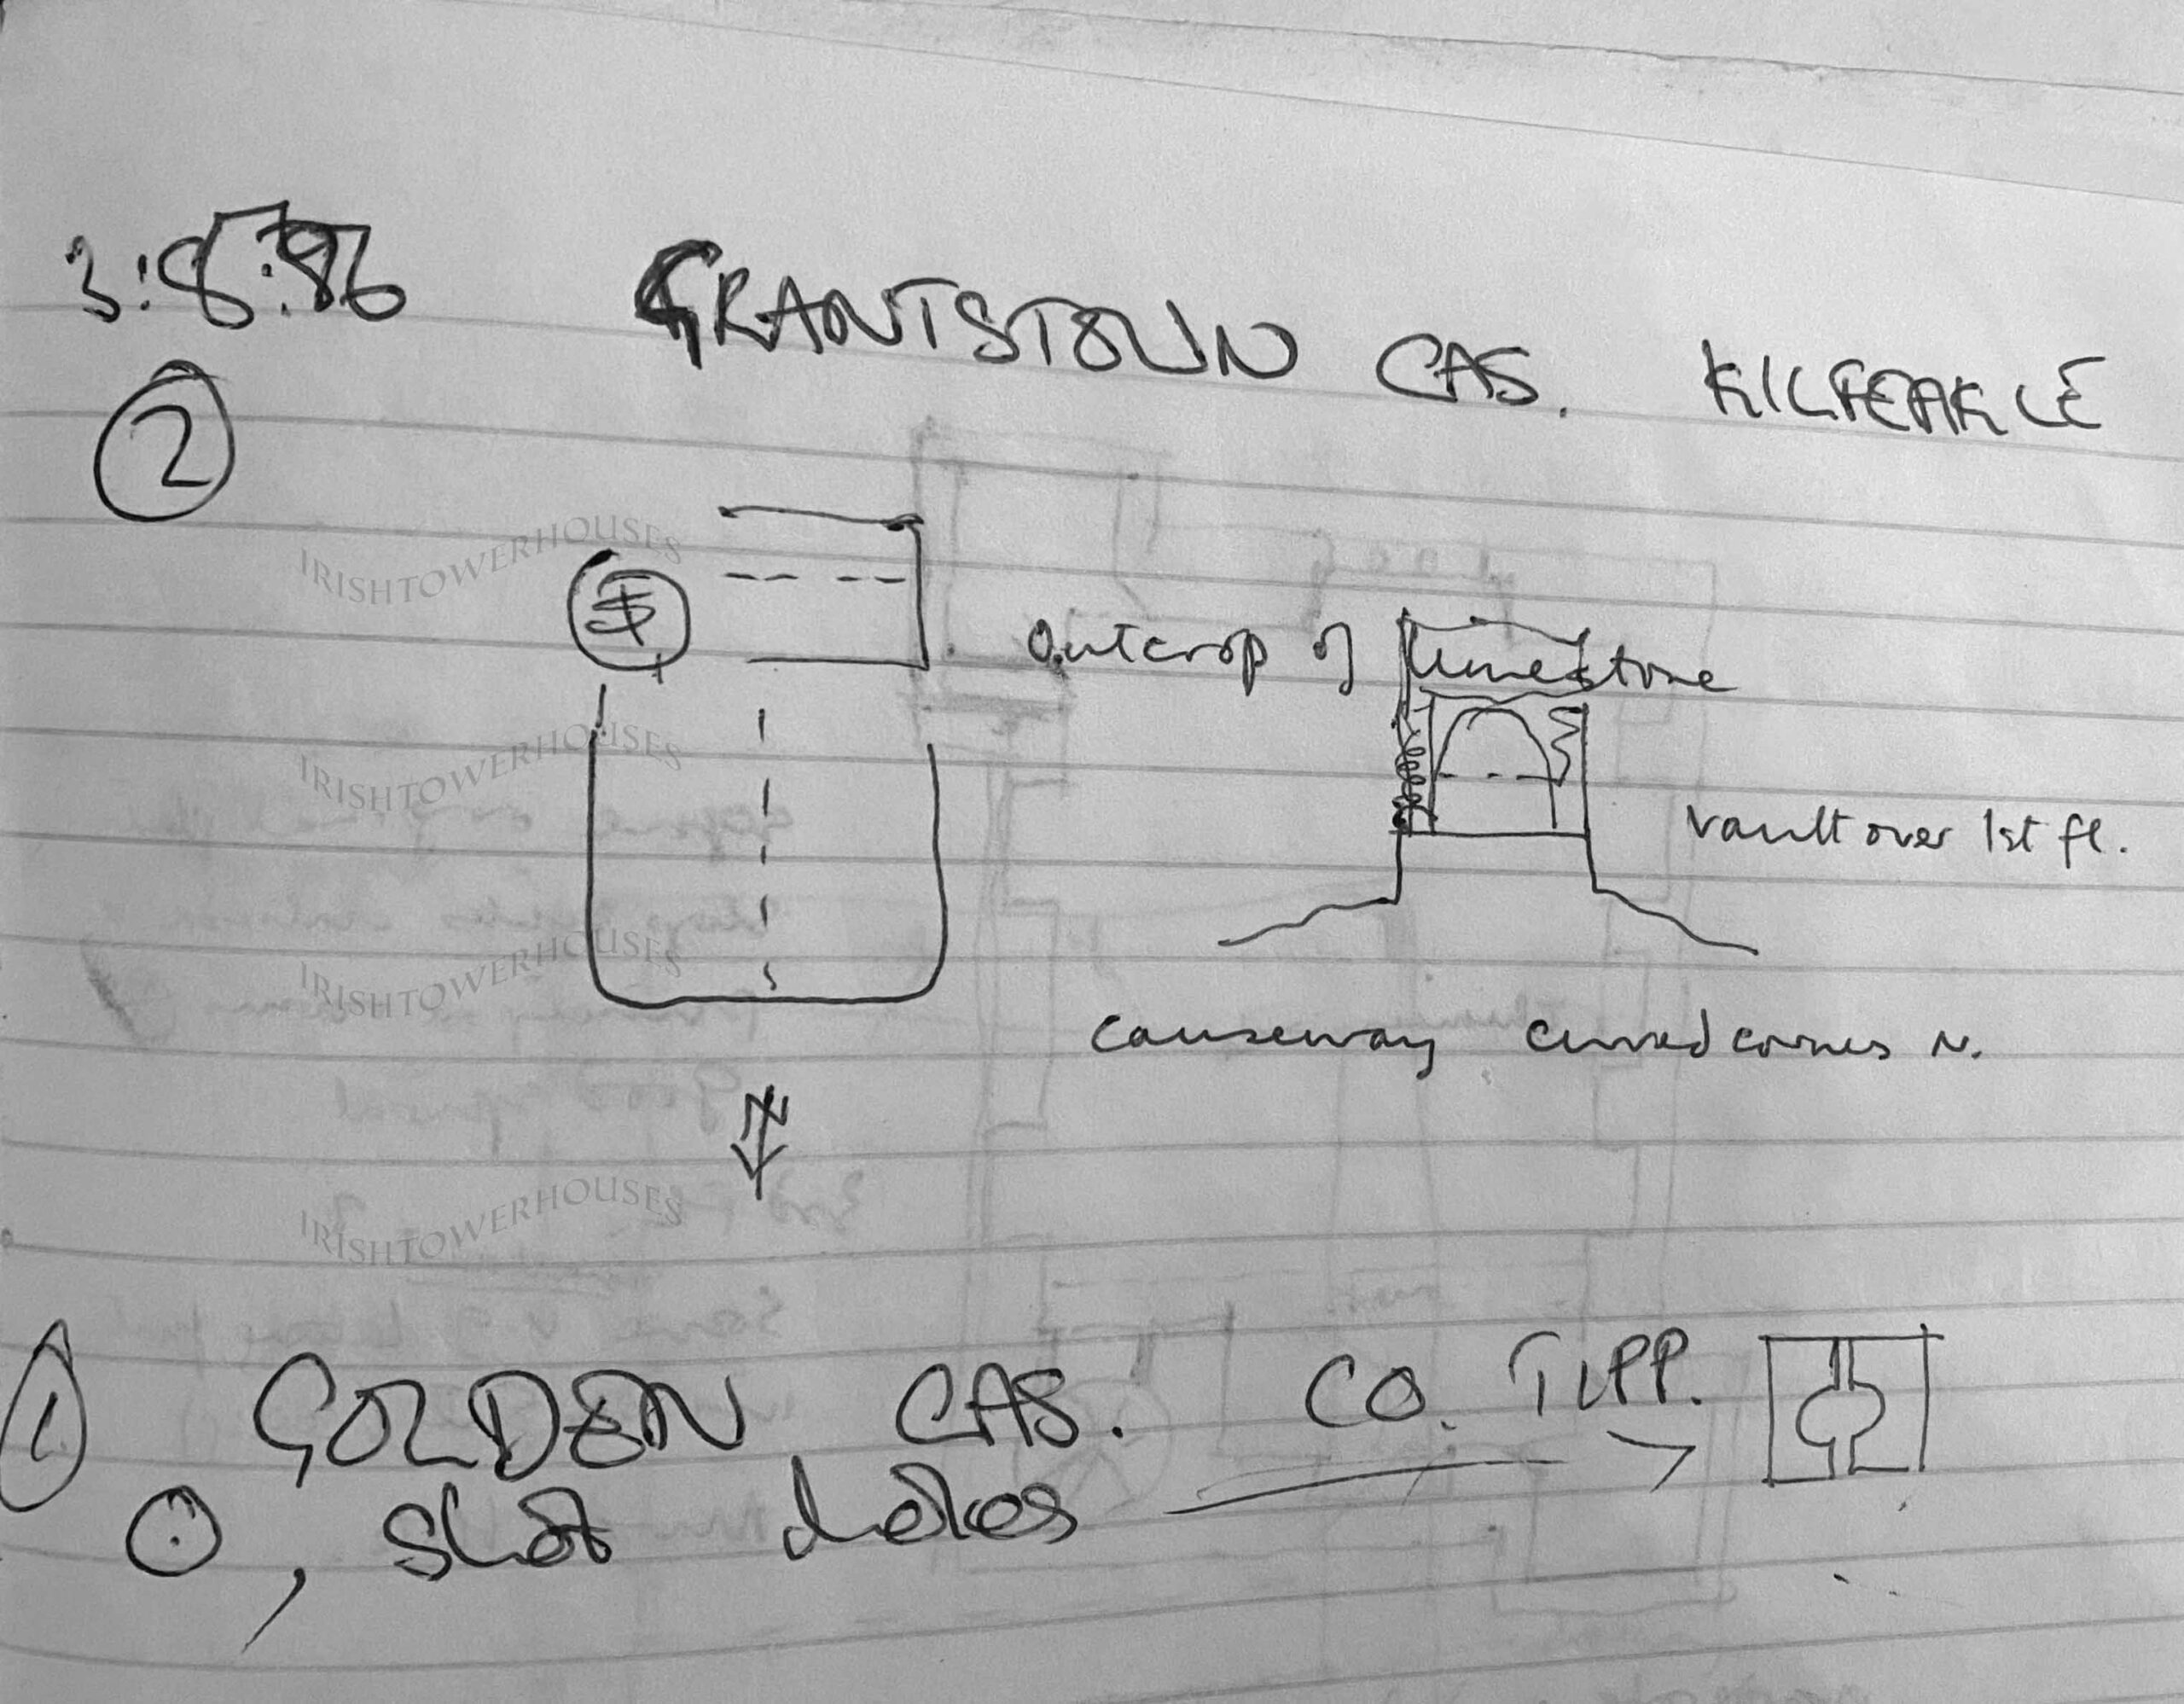 3:8:86 GRANTSTOWN CAS. KILFEAKLE
2
Outcrop of limestone
vault over 1st fl.
causeway curved corners N.
N
1 GOLDEN CAS. CO. TIPP.
, shot holes
IRISHTOWERHOUSES
IRISHTOWERHOUSES
IRISHTOWERHOUSES
IRISHTOWERHOUSES